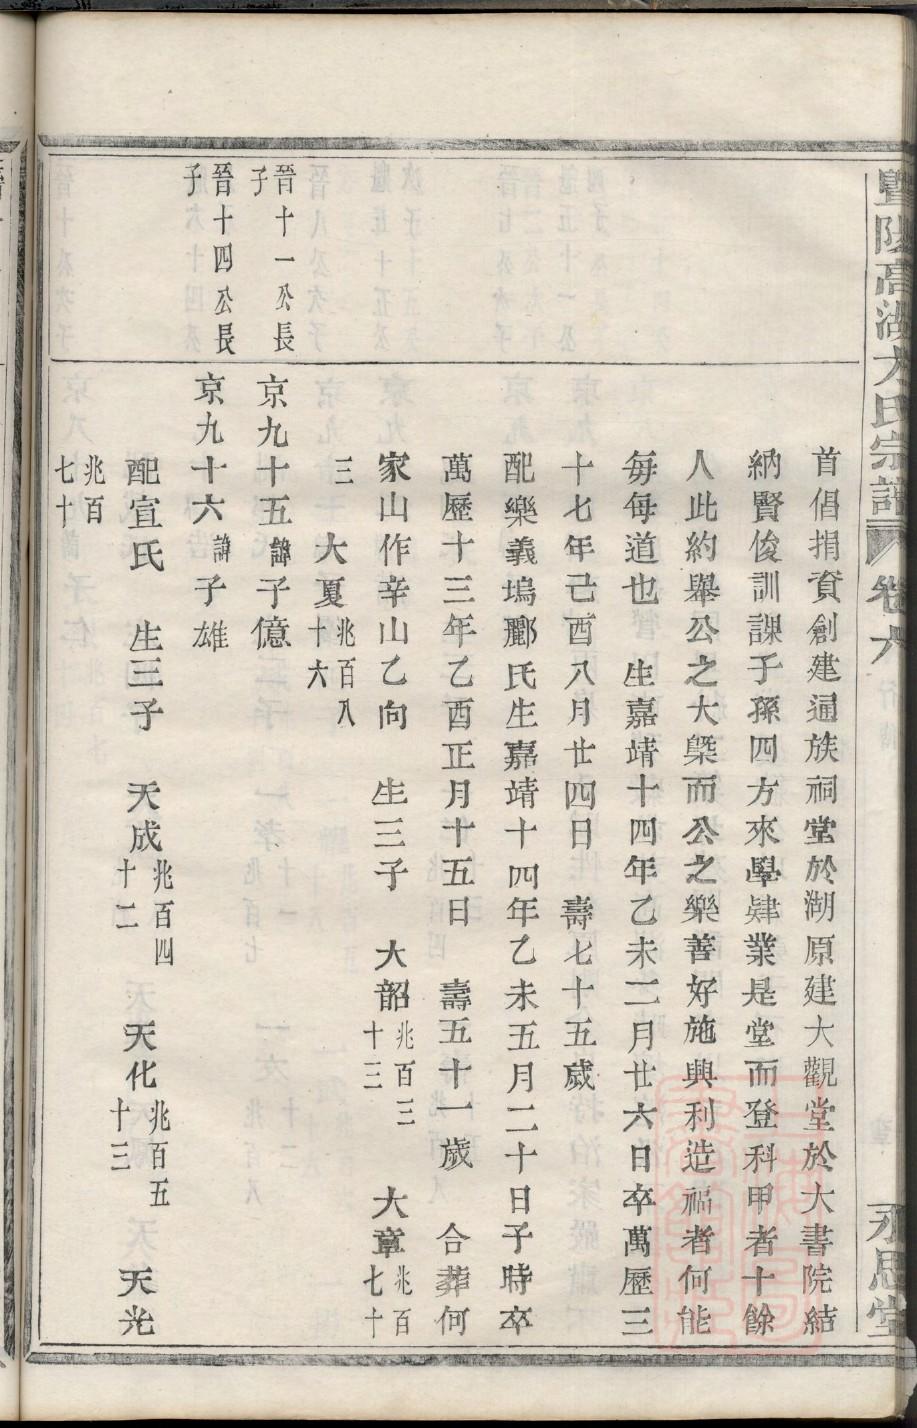 暨陽高湖大氏宗譜 卷六 永思堂
首倡捐資創建通族祠堂於湖原建大觀堂於大書院結
納賢俊訓課子孫四方來學肄業是堂而登科甲者十餘
人此約舉公之大槩而公之樂善好施興利造福者何能
每每道也 生嘉靖十四年乙未二月廿六日卒萬歷三
十七年己酉八月廿四日 壽七十五歲
配樂義塢酈氏生嘉靖十四年乙未五月二十日子時卒
萬歷十三年乙酉正月十五日 壽五十一歲 合葬何
家山作辛山乙向 生三子 大韶兆百三十三 大章兆百七十
三 大夏兆百八十六
晉十一公長子
京九十五諱子億
晉十四公長子
京九十六諱子雄
配宣氏 生三子 天成兆百四十二 天化兆百五十三 天光
兆百七十